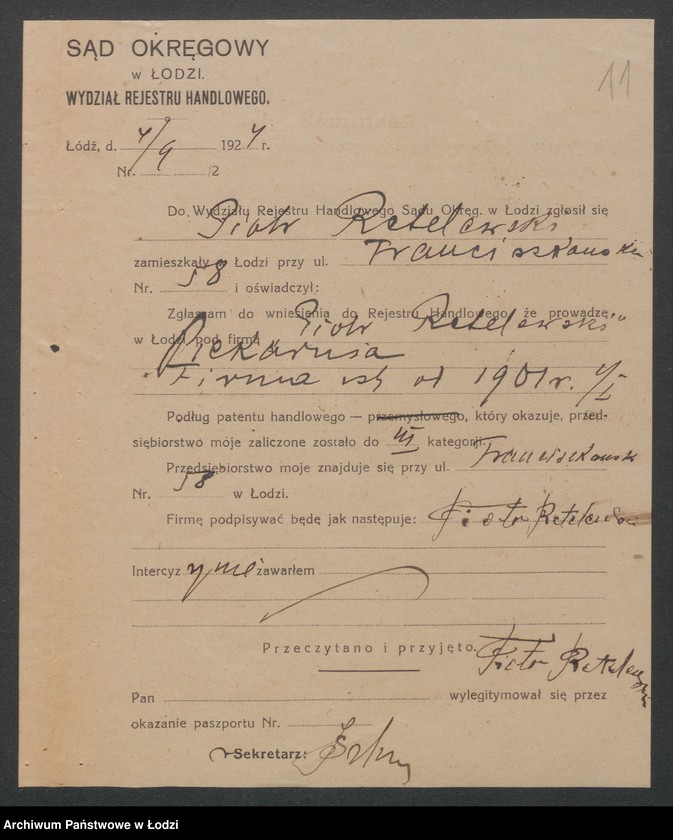 SĄD OKRĘGOWY
w ŁODZI.
WYDZIAŁ REJESTRU HANDLOWEGO.
11
Łódź, d. 4/9 1924 r.
Nr. /2
Do Wydziału Rejestru Handlowego Sądu Okręg. w Łodzi zgłosił się
Piotr Retelewski
zamieszkały w Łodzi przy ul. Franciszkańska
Nr. 58 i oświadczył:
Zgłaszam do wniesienia do Rejestru Handlowego, że prowadzę
w Łodzi pod firmą „Piotr Retelewski"
Piekarnia
Firma istn od 1901 r.
Podług patentu handlowego — przemysłowego, który okazuje, przed-
siębiorstwo moje zaliczone zostało do III kategorji.
Przedsiębiorstwo moje znajduje się przy ul. Franciszkańsk
Nr. 58 w Łodzi.
Firmę podpisywać będę jak następuje: Piotr Retelewski
Intercyzy nie zawarłem
Przeczytano i przyjęto.
Piotr Retelewski
Pan wylegitymował się przez
okazanie paszportu Nr.
Sekretarz:
Archiwum Państwowe w Łodzi